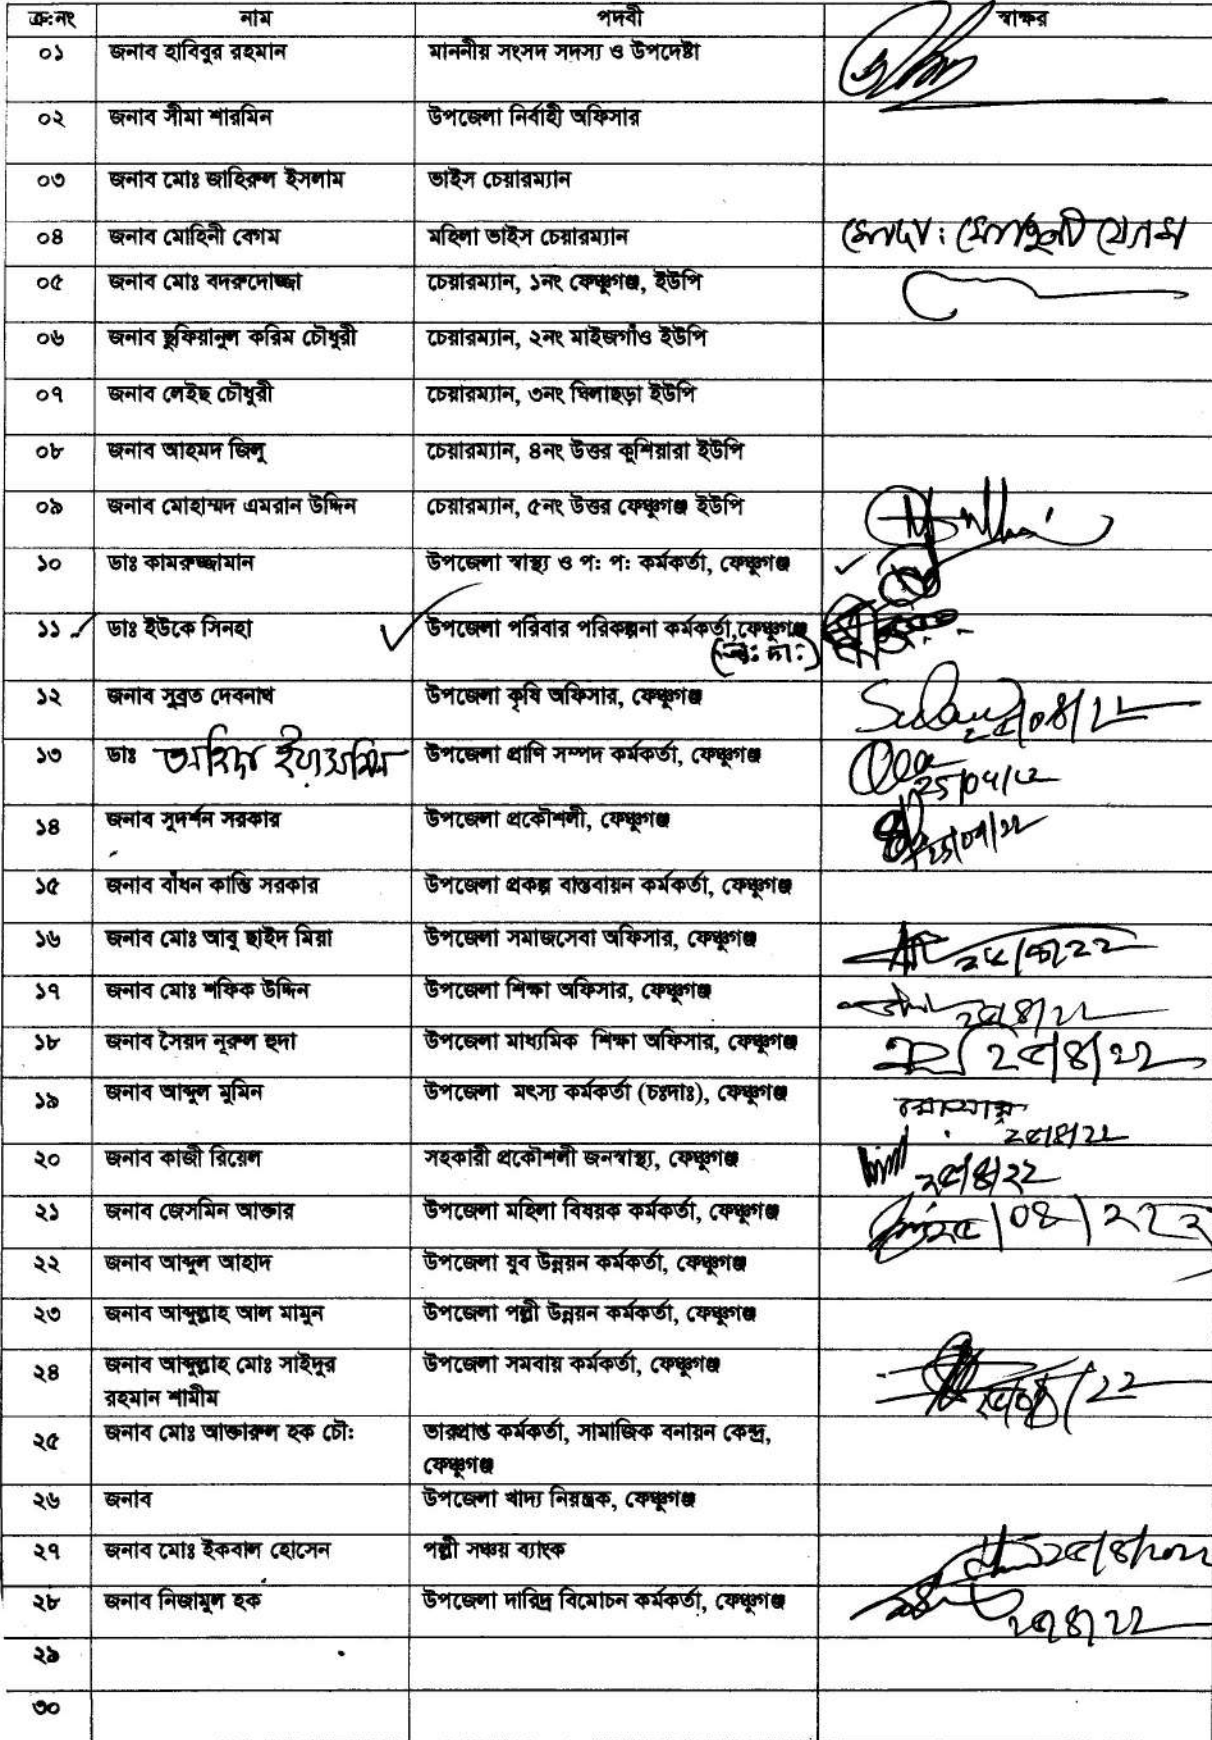 ক্র:নং নাম পদবী স্বাক্ষর
০১ জনাব হাবিবুর রহমান মাননীয় সংসদ সদস্য ও উপদেষ্টা
০২ জনাব সীমা শারমিন উপজেলা নির্বাহী অফিসার
০৩ জনাব মোঃ জাহিরুল ইসলাম ভাইস চেয়ারম্যান
০৪ জনাব মোহিনী বেগম মহিলা ভাইস চেয়ারম্যান
০৫ জনাব মোঃ বদরুদোজ্জা চেয়ারম্যান, ১নং ফেঞ্চুগঞ্জ, ইউপি
০৬ জনাব ছুফিয়ানুল করিম চৌধুরী চেয়ারম্যান, ২নং মাইজগাঁও ইউপি
০৭ জনাব লেইছ চৌধুরী চেয়ারম্যান, ৩নং ঘিলাছড়া ইউপি
০৮ জনাব আহমদ জিলু চেয়ারম্যান, ৪নং উত্তর কুশিয়ারা ইউপি
০৯ জনাব মোহাম্মদ এমরান উদ্দিন চেয়ারম্যান, ৫নং উত্তর ফেঞ্চুগঞ্জ ইউপি
১০ ডাঃ কামরুজ্জামান উপজেলা স্বাস্থ্য ও প: প: কর্মকর্তা, ফেঞ্চুগঞ্জ
১১ ডাঃ ইউকে সিনহা উপজেলা পরিবার পরিকল্পনা কর্মকর্তা,ফেঞ্চুগঞ্জ
১২ জনাব সুব্রত দেবনাথ উপজেলা কৃষি অফিসার, ফেঞ্চুগঞ্জ ২৫/০৪/২২
১৩ ডাঃ ইয়াসমিন উপজেলা প্রাণি সম্পদ কর্মকর্তা, ফেঞ্চুগঞ্জ
25/04/22
১৪ জনাব সুদর্শন সরকার উপজেলা প্রকৌশলী, ফেঞ্চুগঞ্জ
১৫ জনাব বাঁধন কান্তি সরকার উপজেলা প্রকল্প বাস্তবায়ন কর্মকর্তা, ফেঞ্চুগঞ্জ
১৬ জনাব মোঃ আবু ছাইদ মিয়া উপজেলা সমাজসেবা অফিসার, ফেঞ্চুগঞ্জ ২৫/৪/২২
১৭ জনাব মোঃ শফিক উদ্দিন উপজেলা শিক্ষা অফিসার, ফেঞ্চুগঞ্জ ২৫/৪/২২
১৮ জনাব সৈয়দ নূরুল হুদা উপজেলা মাধ্যমিক শিক্ষা অফিসার, ফেঞ্চুগঞ্জ ২৫/৪/২২
১৯ জনাব আব্দুল মুমিন উপজেলা মৎস্য কর্মকর্তা (চঃদাঃ), ফেঞ্চুগঞ্জ
২৫/৪/২২
২০ জনাব কাজী রিয়েল সহকারী প্রকৌশলী জনস্বাস্থ্য, ফেঞ্চুগঞ্জ ২৫/৪/২২
২১ জনাব জেসমিন আক্তার উপজেলা মহিলা বিষয়ক কর্মকর্তা, ফেঞ্চুগঞ্জ
২২ জনাব আব্দুল আহাদ উপজেলা যুব উন্নয়ন কর্মকর্তা, ফেঞ্চুগঞ্জ
২৩ জনাব আব্দুল্লাহ আল মামুন উপজেলা পল্লী উন্নয়ন কর্মকর্তা, ফেঞ্চুগঞ্জ
২৪ জনাব আব্দুল্লাহ মোঃ সাইদুর উপজেলা সমবায় কর্মকর্তা, ফেঞ্চুগঞ্জ
রহমান শামীম
২৫ জনাব মোঃ আক্তারুল হক চৌ: ভারপ্রাপ্ত কর্মকর্তা, সামাজিক বনায়ন কেন্দ্র,
ফেঞ্চুগঞ্জ
২৬ জনাব উপজেলা খাদ্য নিয়ন্ত্রক, ফেঞ্চুগঞ্জ
২৭ জনাব মোঃ ইকবাল হোসেন পল্লী সঞ্চয় ব্যাংক
২৮ জনাব নিজামুল হক উপজেলা দারিদ্র বিমোচন কর্মকর্তা, ফেঞ্চুগঞ্জ
২৫/৪/২২
২৯
৩০